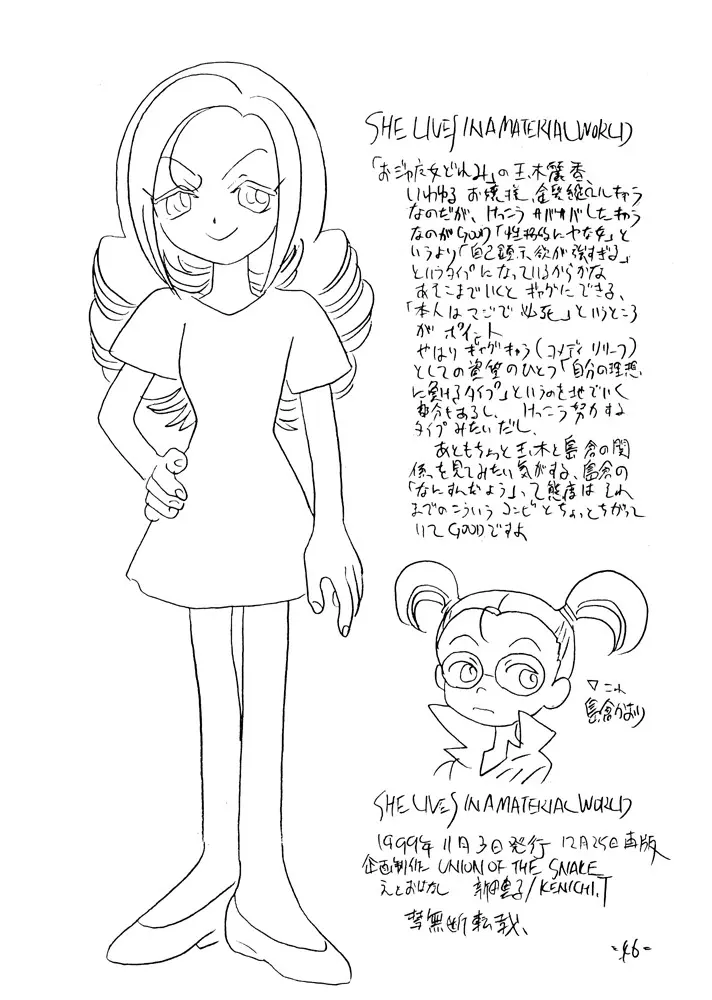 SHE LIVES IN A MATERIAL WORLD
「おジャ魔女どれみ」の玉木麗香、
いわゆる お嬢様、金髪縦ロールキャラ
なのだが、けっこう サバサバしたキャラ
なのがGOOD「性格的にヤな女」と
いうより「自己顕示欲が強すぎる」
というタイプになっているからかな
あそこまでいくと ギャグにできる、
「本人はマジで必死」というところ
が ポイント
やはり ギャグキャラ(コメディリリーフ)
としての資質のひとつ「自分の理想
に負けるタイプ」というのを地でいく
部分もあるし、 けっこう努力する
タイプみたいだし、
あともちょっと玉木と島倉の関
係を見てみたい気がする、島倉の
「なにすんだよう」って態度は それ
までのこういう コンビとちょっとちがって
いてGOODですよ
▽これ
島倉かおり
SHE LIVES IN A MATERIAL WORLD
1999年11月3日発行 12月25日再版
企画制作 UNION OF THE SNAKE
えとおはなし /KENICHI.T
禁無断転載、
-46-